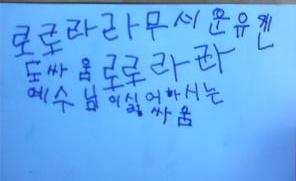 로로라라무서운유퀸
도싸움로로라라
예수님이싫어하시는
싸움